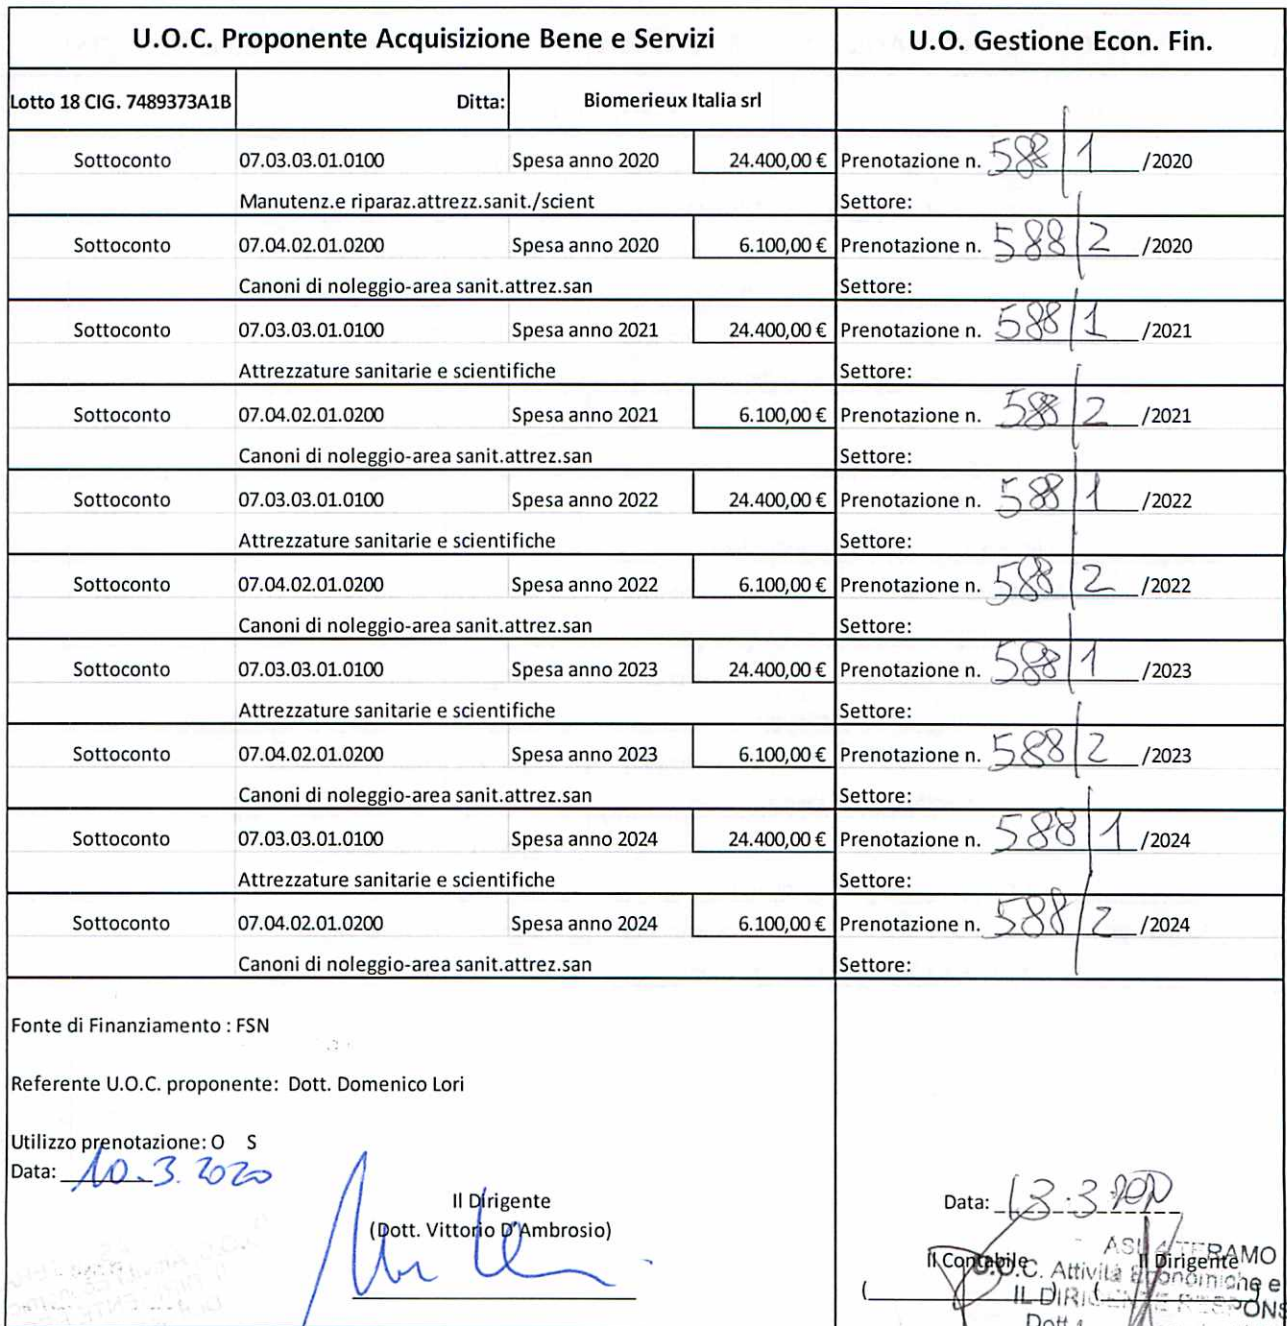 U.O.C. Proponente Acquisizione Bene e Servizi U.O. Gestione Econ. Fin.
Lotto 18 CIG. 7489373A1B Ditta: Biomerieux Italia srl
Sottoconto 07.03.03.01.0100 Spesa anno 2020 24.400,00 € Prenotazione n. 588/1 /2020
Manutenz.e riparaz.attrezz.sanit./scient Settore:
Sottoconto 07.04.02.01.0200 Spesa anno 2020 6.100,00 € Prenotazione n. 588/2 /2020
Canoni di noleggio-area sanit.attrez.san Settore:
Sottoconto 07.03.03.01.0100 Spesa anno 2021 24.400,00 € Prenotazione n. 588/1 /2021
Attrezzature sanitarie e scientifiche Settore:
Sottoconto 07.04.02.01.0200 Spesa anno 2021 6.100,00 € Prenotazione n. 588/2 /2021
Canoni di noleggio-area sanit.attrez.san Settore:
Sottoconto 07.03.03.01.0100 Spesa anno 2022 24.400,00 € Prenotazione n. 588/1 /2022
Attrezzature sanitarie e scientifiche Settore:
Sottoconto 07.04.02.01.0200 Spesa anno 2022 6.100,00 € Prenotazione n. 588/2 /2022
Canoni di noleggio-area sanit.attrez.san Settore:
Sottoconto 07.03.03.01.0100 Spesa anno 2023 24.400,00 € Prenotazione n. 588/1 /2023
Attrezzature sanitarie e scientifiche Settore:
Sottoconto 07.04.02.01.0200 Spesa anno 2023 6.100,00 € Prenotazione n. 588/2 /2023
Canoni di noleggio-area sanit.attrez.san Settore:
Sottoconto 07.03.03.01.0100 Spesa anno 2024 24.400,00 € Prenotazione n. 588/1 /2024
Attrezzature sanitarie e scientifiche Settore:
Sottoconto 07.04.02.01.0200 Spesa anno 2024 6.100,00 € Prenotazione n. 588/2 /2024
Canoni di noleggio-area sanit.attrez.san Settore:
Fonte di Finanziamento : FSN
Referente U.O.C. proponente: Dott. Domenico Lori
Utilizzo prenotazione: O S
Data: 10.3.2020
Il Dirigente
(Dott. Vittorio D'Ambrosio)
Data: 13.3
ASL 4 TERAMO
Il Contabile Il Dirigente
U.O.C. Attività Economiche e
IL DIRIGENTE RESPONS
Dott